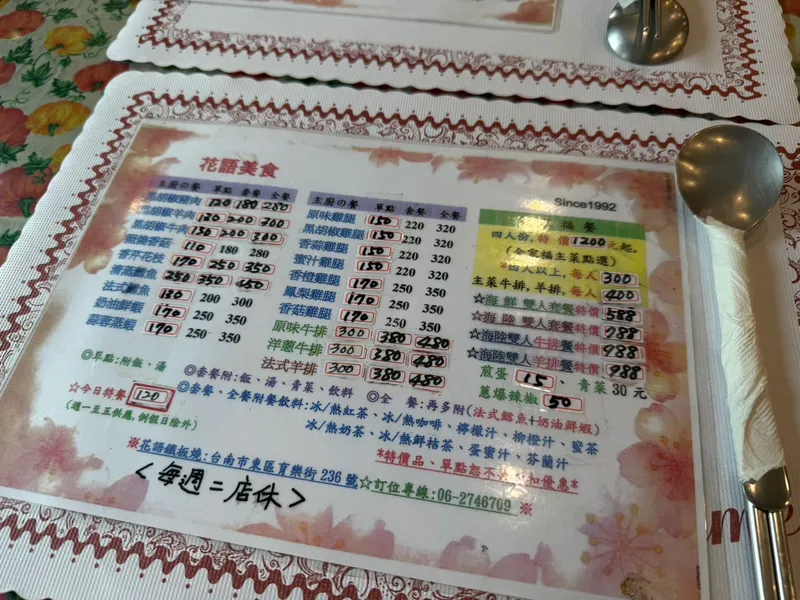 花語美食
Since1992
主廚の餐 單點 套餐 全餐
黑胡椒豬肉 120 180 280
黑胡椒羊肉 130 200 300
黑胡椒牛肉 130 200 300
香菇 110 180 280
香芹花枝 170 250 350
鱈魚 250 350 450
法式鯛魚 130 200 300
奶油鮮蝦 170 250 350
蒜蓉蒸蝦 170 250 350
◎單點:附飯、湯
主廚の餐 單點 套餐 全餐
原味雞腿 150 220 320
黑胡椒雞腿 150 220 320
香蒜雞腿 150 220 320
蜜汁雞腿 150 220 320
香橙雞腿 170 250 350
鳳梨雞腿 170 250 350
香菇雞腿 170 250 350
原味牛排 300 380 480
洋蔥牛排 300 380 480
法式羊排 300 380 480
福餐
四人份,特價1200元起,
(全家福主菜點選)
*四人以上,每人 300
主菜牛排,羊排,每人 400
☆海鮮雙人套餐特價 588
☆海陸雙人套餐特價 788
☆海陸雙人牛排餐特價 988
☆海陸雙人羊排餐特價 988
煎蛋 15、青菜 30 元
蔥爆辣椒 50
◎套餐附:飯、湯、青菜、飲料 ◎全 餐:再多附(法式鱈魚+奶油鮮蝦)
☆今日特餐 120
(週一至五供應,例假日除外)
◎套餐、全餐附餐飲料:冰/熱紅茶、冰/熱咖啡、檸檬汁、柳橙汁、蜜茶
冰/熱奶茶、冰/熱鮮桔茶、蛋蜜汁、芬蘭汁
*特價品、單點恕不再折扣優惠*
※花語鐵板燒:台南市東區育樂街236號☆訂位專線:06-2746709 ※
<每週二店休>